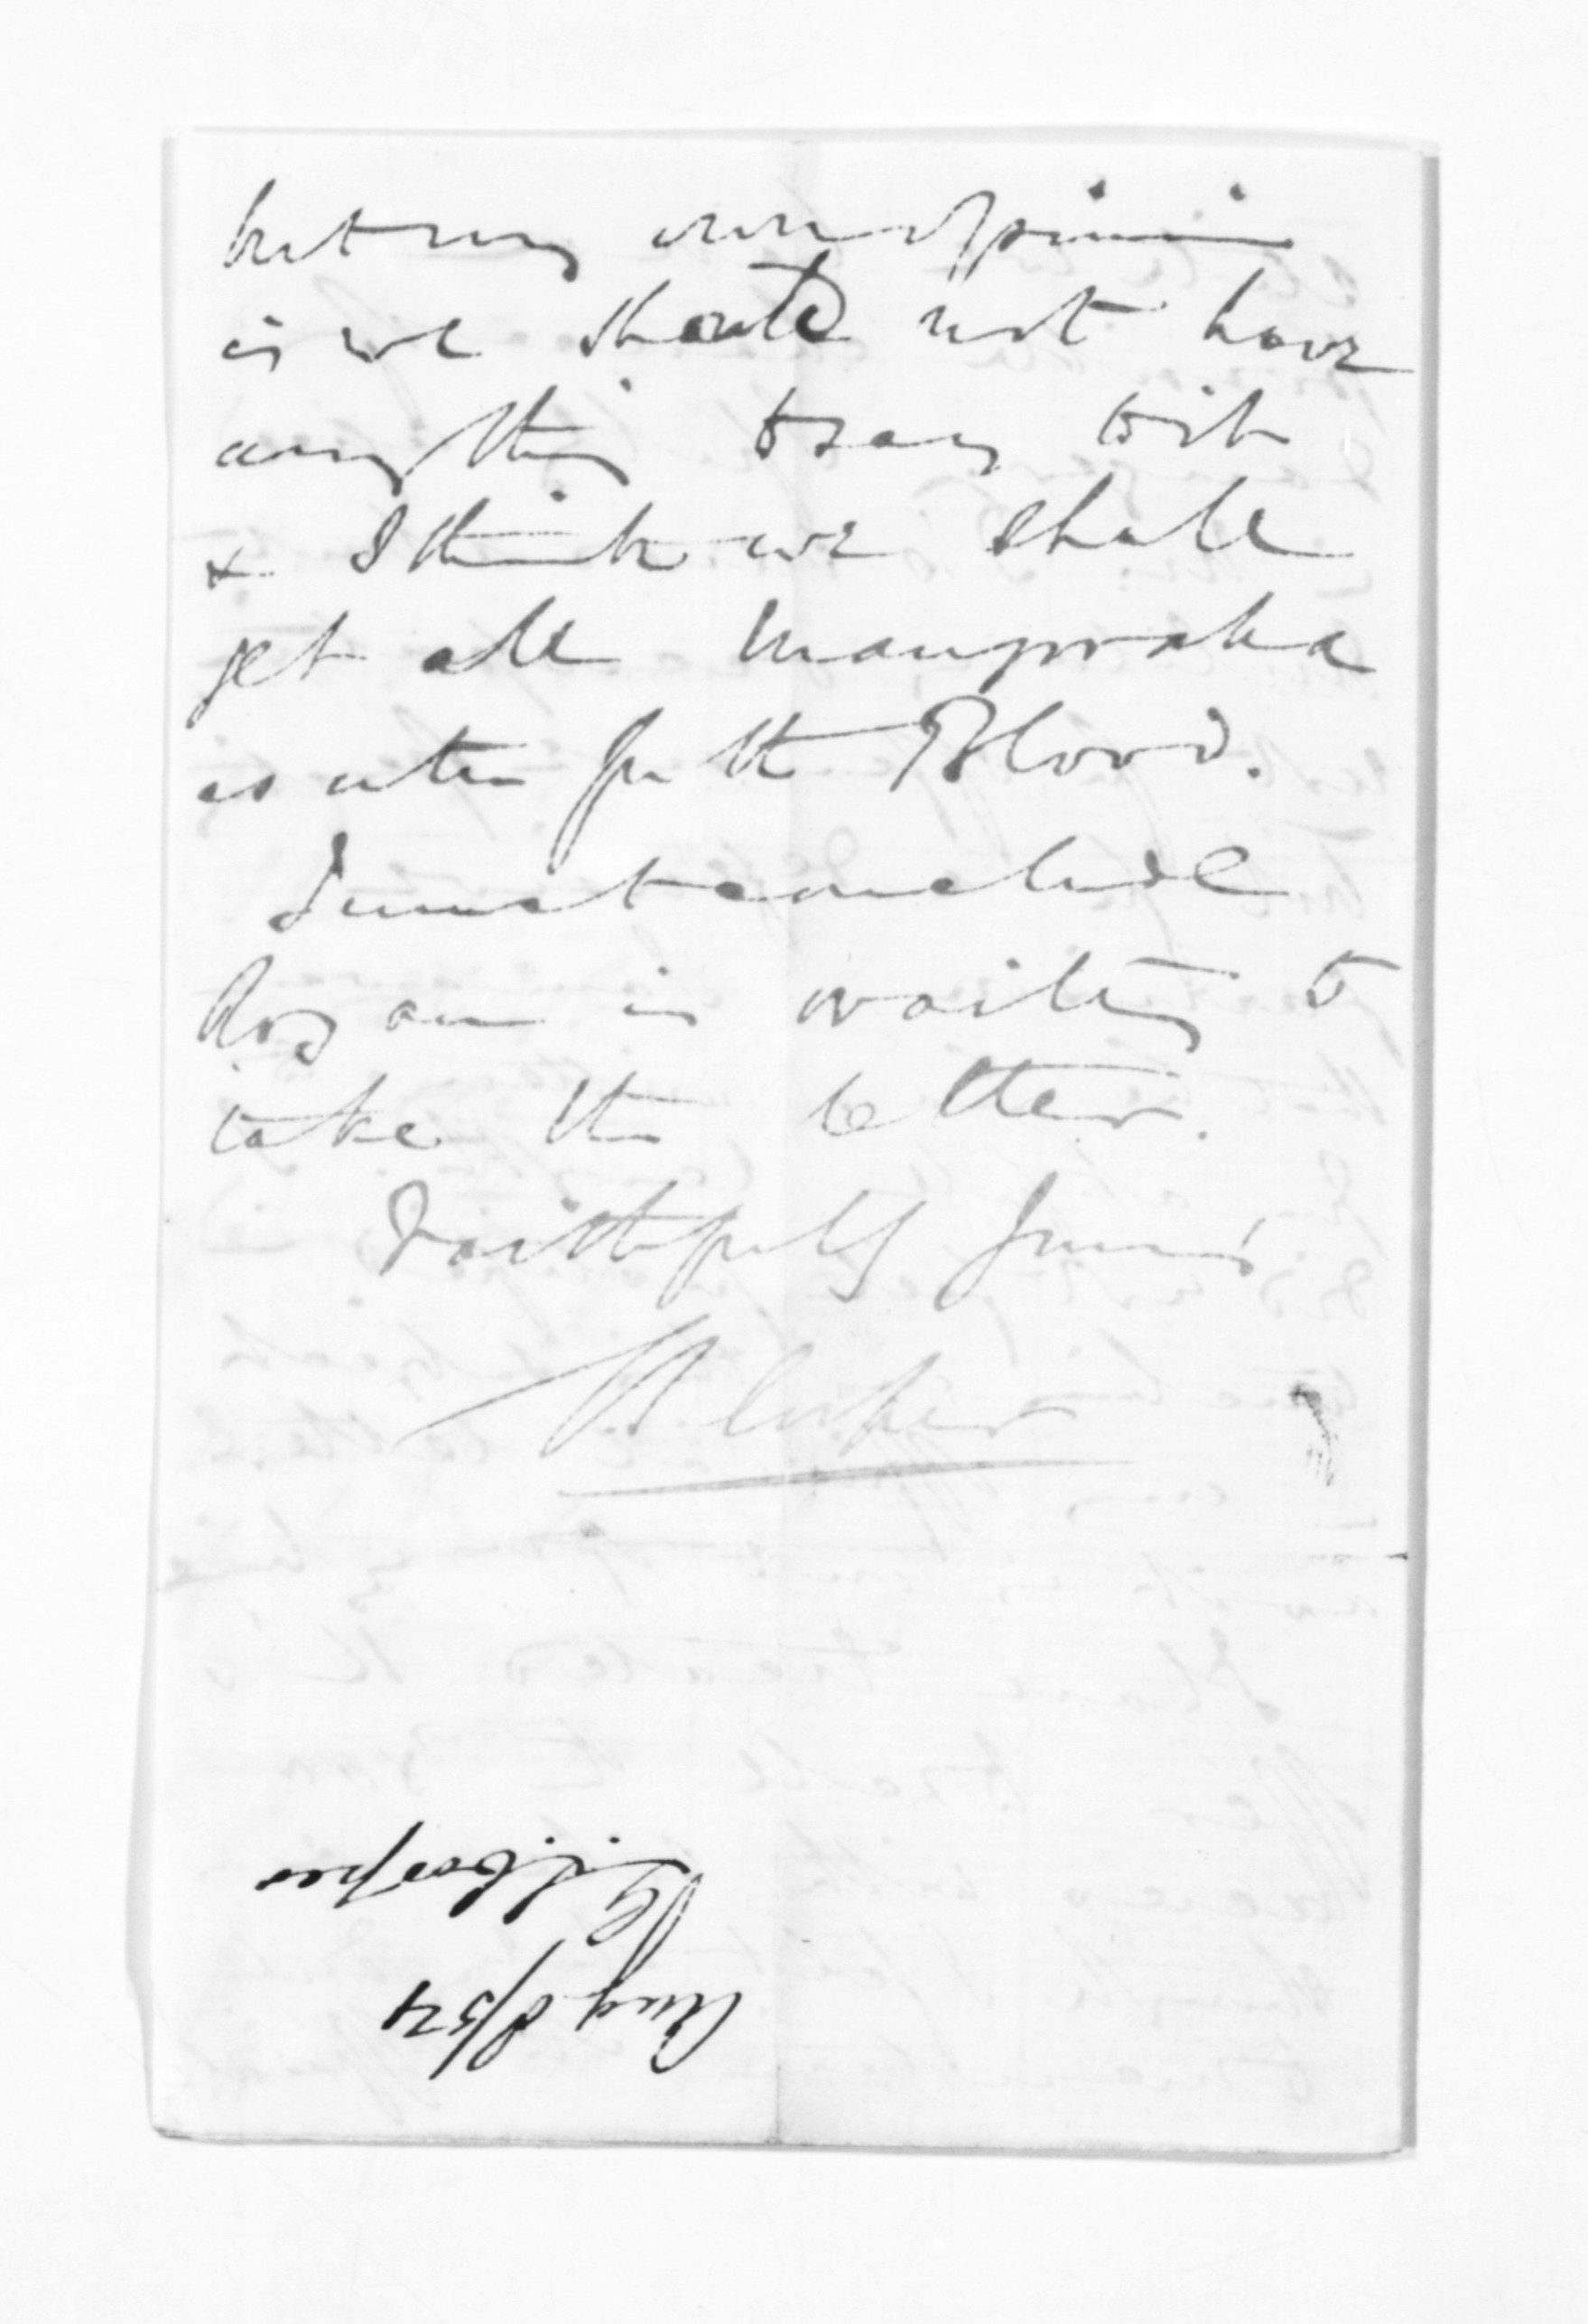 but my own opinion
is we should not have
anything to say to it
& I think we shall
get all Maungaroha
as utu for the Blood.
I must conclude
Rogan is waiting to
take the letter.
Faithfully Yours
G. S. Cooper
Aug 8/54